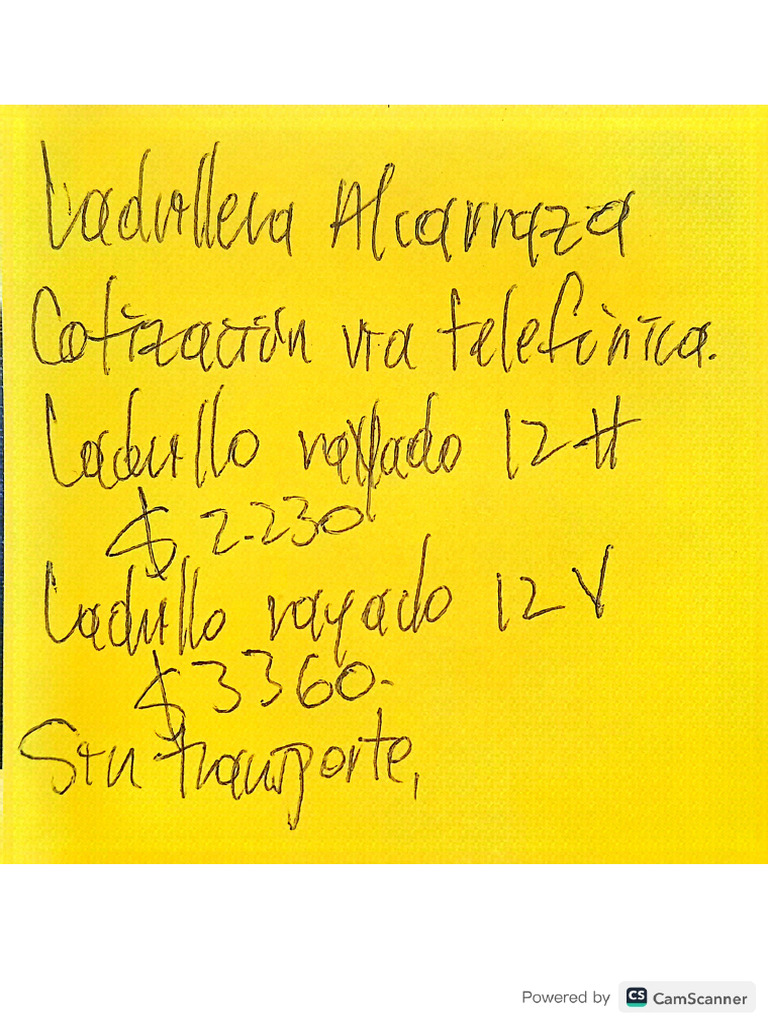 Ladrillera Alcarraza
Cotización via telefónica.
Ladrillo rayado 12 H
$ 2.230
Ladrillo rayado 12 V
$ 3360.
Sin transporte,
Powered by CS CamScanner